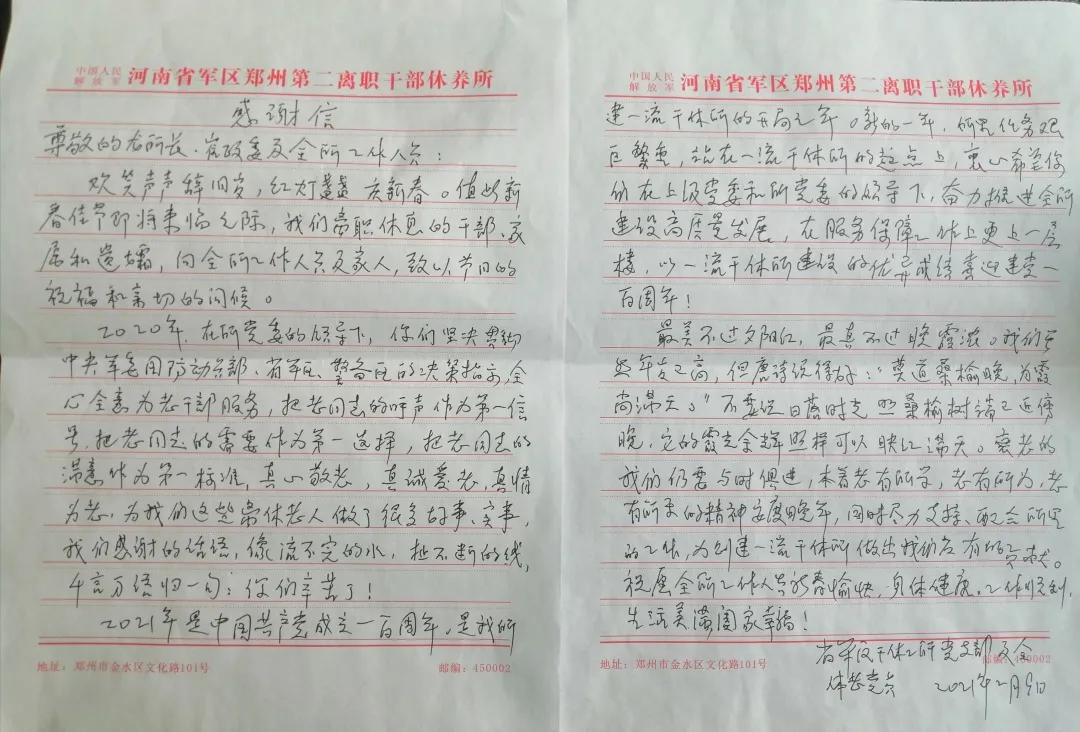 中国人民解放军 河南省军区郑州第二离职干部休养所
感谢信
尊敬的左所长、崔政委及全所工作人员：
欢笑声声辞旧岁，红灯盏盏庆新春。值此新
春佳节即将来临之际，我们离职休息的干部、家
属和遗孀，向全所工作人员及家人，致以节日的
祝福和亲切的问候。
2020年，在所党委的领导下，你们坚决贯彻
中央军委国防动员部、省军区、警备区的决策指示，全
心全意为老干部服务，把老同志的呼声作为第一信
号，把老同志的需要作为第一选择，把老同志的
满意作为第一标准，真心敬老，真诚爱老，真情
为老，为我们这些离休老人做了很多好事、实事，
我们感谢的话语，像流不完的水，扯不断的线，
千言万语归一句：你们辛苦了！
2021年是中国共产党成立一百周年，是我所
地址：郑州市金水区文化路101号 邮编：450002
中国人民解放军 河南省军区郑州第二离职干部休养所
建一流干休所的开局之年。新的一年，所里任务艰
巨繁重，站在一流干休所的起点上，衷心希望你
们在上级党委和所党委的领导下，奋力推进全所
建设高质量发展，在服务保障工作上更上一层
楼，以一流干休所建设的优异成绩喜迎建党一
百周年！
最美不过夕阳红，最真不过晚霞滋。我们
年岁之高，但唐诗说得好：“莫道桑榆晚，为霞
尚满天。”不要说日落时光照桑榆树端已近傍
晚，它的霞光余辉照样可以映红满天。离老的
我们仍要与时俱进，本着老有所学，老有所为，老
有所乐的精神安度晚年，同时尽力支持、配合所里
的工作，为创建一流干休所做出我们应有的贡献。
祝愿全所工作人员新春愉快，身体健康，工作顺利，
生活美满阖家幸福！
省军区干休二所党支部及全
体老党员 2021年2月9日
地址：郑州市金水区文化路101号 邮编：450002